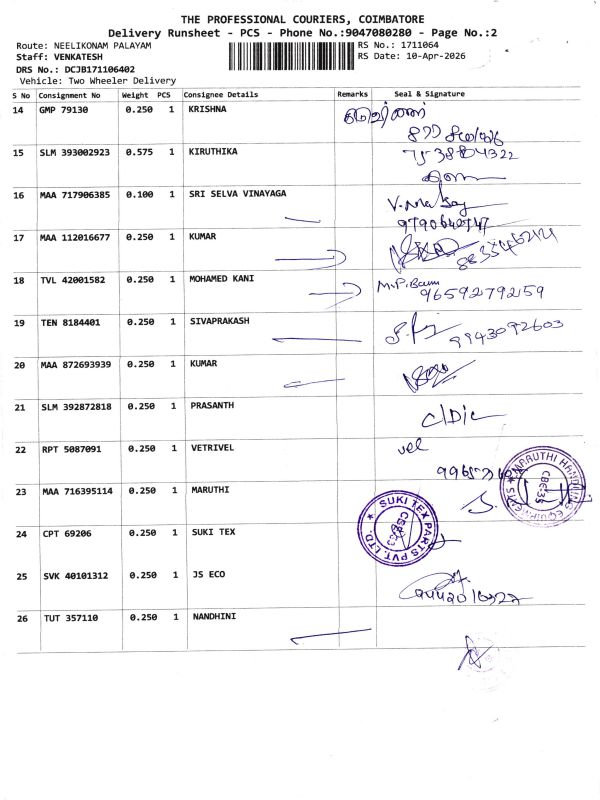 THE PROFESSIONAL COURIERS, COIMBATORE
Delivery Runsheet - PCS - Phone No.:9047080280 - Page No.:2
Route: NEELIKONAM PALAYAM
RS No.: 1711064
Staff: VENKATESH
RS Date: 10-Apr-2026
DRS No.: DCJB171106402
Vehicle: Two Wheeler Delivery
S No Consignment No Weight PCS Consignee Details Remarks Seal & Signature
14 GMP 79130 0.250 1 KRISHNA
15 SLM 393002923 0.575 1 KIRUTHIKA
16 MAA 717906385 0.100 1 SRI SELVA VINAYAGA
9790640747
17 MAA 112016677 0.250 1 KUMAR
18 TVL 42001582 0.250 1 MOHAMED KANI M.P.
96592792159
19 TEN 8184401 0.250 1 SIVAPRAKASH
9943092603
20 MAA 872693939 0.250 1 KUMAR
21 SLM 392872818 0.250 1 PRASANTH
22 RPT 5087091 0.250 1 VETRIVEL vel
23 MAA 716395114 0.250 1 MARUTHI
MARUTHI HANDLING EQUIPMENTS
24 CPT 69206 0.250 1 SUKI TEX
SUKI TEX PARTS PVT. LTD.
25 SVK 40101312 0.250 1 JS ECO
26 TUT 357110 0.250 1 NANDHINI